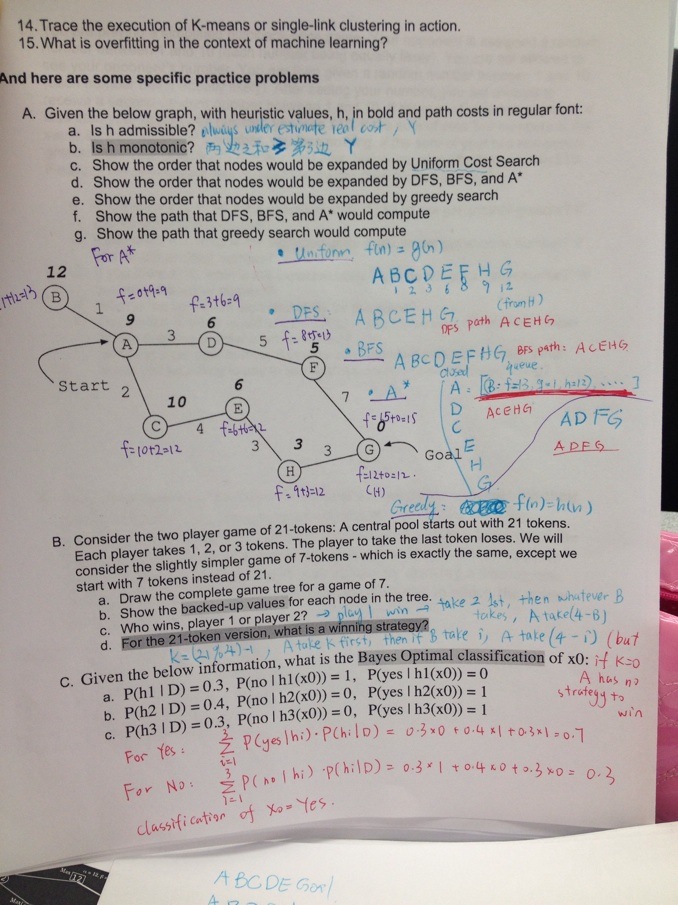 14. Trace the execution of K-means or single-link clustering in action.
15. What is overfitting in the context of machine learning?
And here are some specific practice problems
A. Given the below graph, with heuristic values, h, in bold and path costs in regular font:
a. Is h admissible? always under estimate real cost, Y
b. Is h monotonic? 两边之和 第3边 Y
c. Show the order that nodes would be expanded by Uniform Cost Search
d. Show the order that nodes would be expanded by DFS, BFS, and A*
e. Show the order that nodes would be expanded by greedy search
f. Show the path that DFS, BFS, and A* would compute
g. Show the path that greedy search would compute
For A*
• Uniform f(n) = g(n)
A B C D E F H G
1 2 3 6 8 9 12
(from H)
12
B
1+12=13
1
f=0+9=9
9
A
3
f=3+6=9
6
D
5
f=8+5=13
5
F
7
Start
2
10
C
f=10+2=12
4
6
E
f=6+6=12
3
3
H
f=9+3=12
3
G
Goal
f=15+0=15
f=12+0=12.
(H)
• DFS: A B C E H G DFS path A C E H G
• BFS A B C D E F H G BFS path: A C E H G
• A*
closed queue.
A: [(B: f=13, g=1, h=12), .... ]
D
C
E
H
G
A C E H G
A D F G
A D F G
Greedy: f(n)=h(n)
B. Consider the two player game of 21-tokens: A central pool starts out with 21 tokens.
Each player takes 1, 2, or 3 tokens. The player to take the last token loses. We will
consider the slightly simpler game of 7-tokens - which is exactly the same, except we
start with 7 tokens instead of 21.
a. Draw the complete game tree for a game of 7.
b. Show the backed-up values for each node in the tree.
c. Who wins, player 1 or player 2? → play 1 win → take 2 1st, then whatever B
takes, A take (4-B)
d. For the 21-token version, what is a winning strategy?
K=(21%4)-1, A take K first, then if B take i, A take (4-i) (but
if K=0
A has no
strategy to
win
C. Given the below information, what is the Bayes Optimal classification of x0:
a. P(h1 | D) = 0.3, P(no | h1(x0)) = 1, P(yes | h1(x0)) = 0
b. P(h2 | D) = 0.4, P(no | h2(x0)) = 0, P(yes | h2(x0)) = 1
c. P(h3 | D) = 0.3, P(no | h3(x0)) = 0, P(yes | h3(x0)) = 1
For Yes: 3 Σ i=1 P(yes|hi)·P(hi|D) = 0.3×0 + 0.4×1 + 0.3×1 = 0.7
For No: 3 Σ i=1 P(no|hi)·P(hi|D) = 0.3×1 + 0.4×0 + 0.3×0 = 0.3
classification of x0 = Yes.
A B C D E Goal